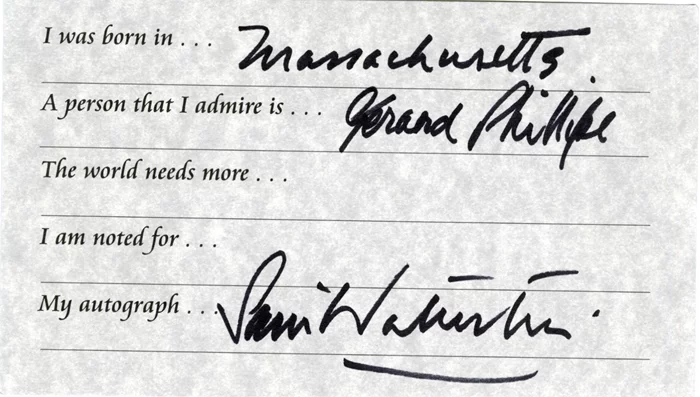 I was born in . . . Massachusetts.
A person that I admire is . . . Gerard Phillipe
The world needs more . . .
I am noted for . . .
My autograph . . . Sam Waterston